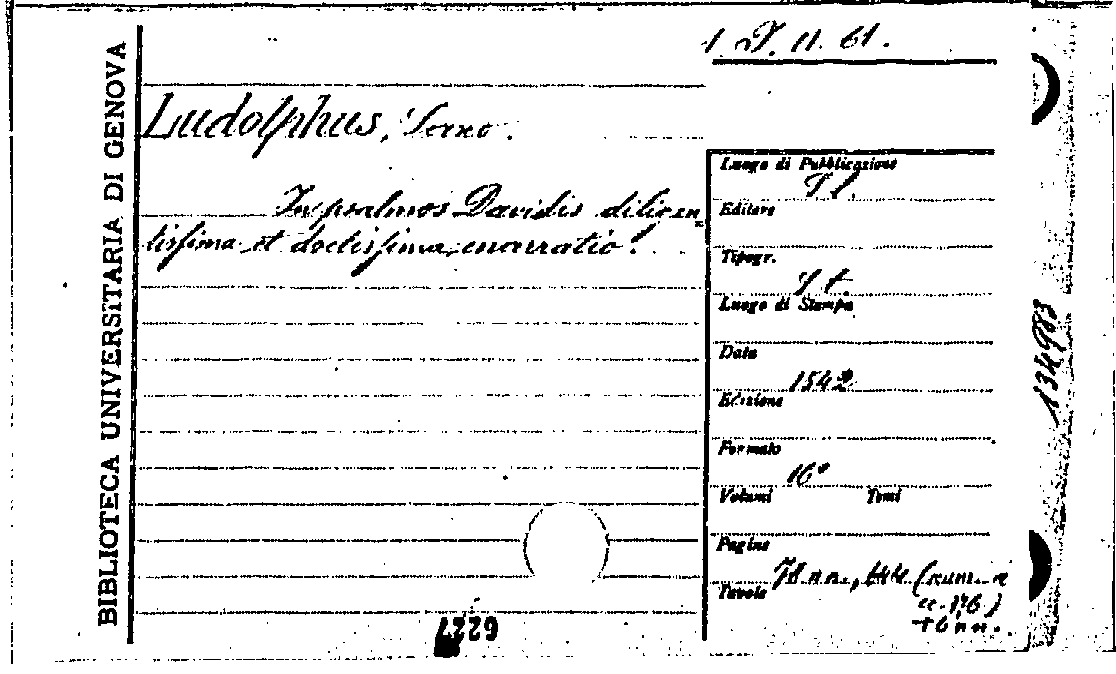 BIBLIOTECA UNIVERSITARIA DI GENOVA
1. T. 11. 61.
Ludolphus,
In psalmos Davidis diligen
tissima et doctissima enarratio.
Luogo di Pubblicazione
S. l.
Editore
Tipogr.
S. t.
Luogo di Stampa
Data
1542
Edizione
Formato
16°
Volumi Tomi
Pagine
Tavole
nn., (num.
cc. 176)
+ 6 nn.
134983
6227